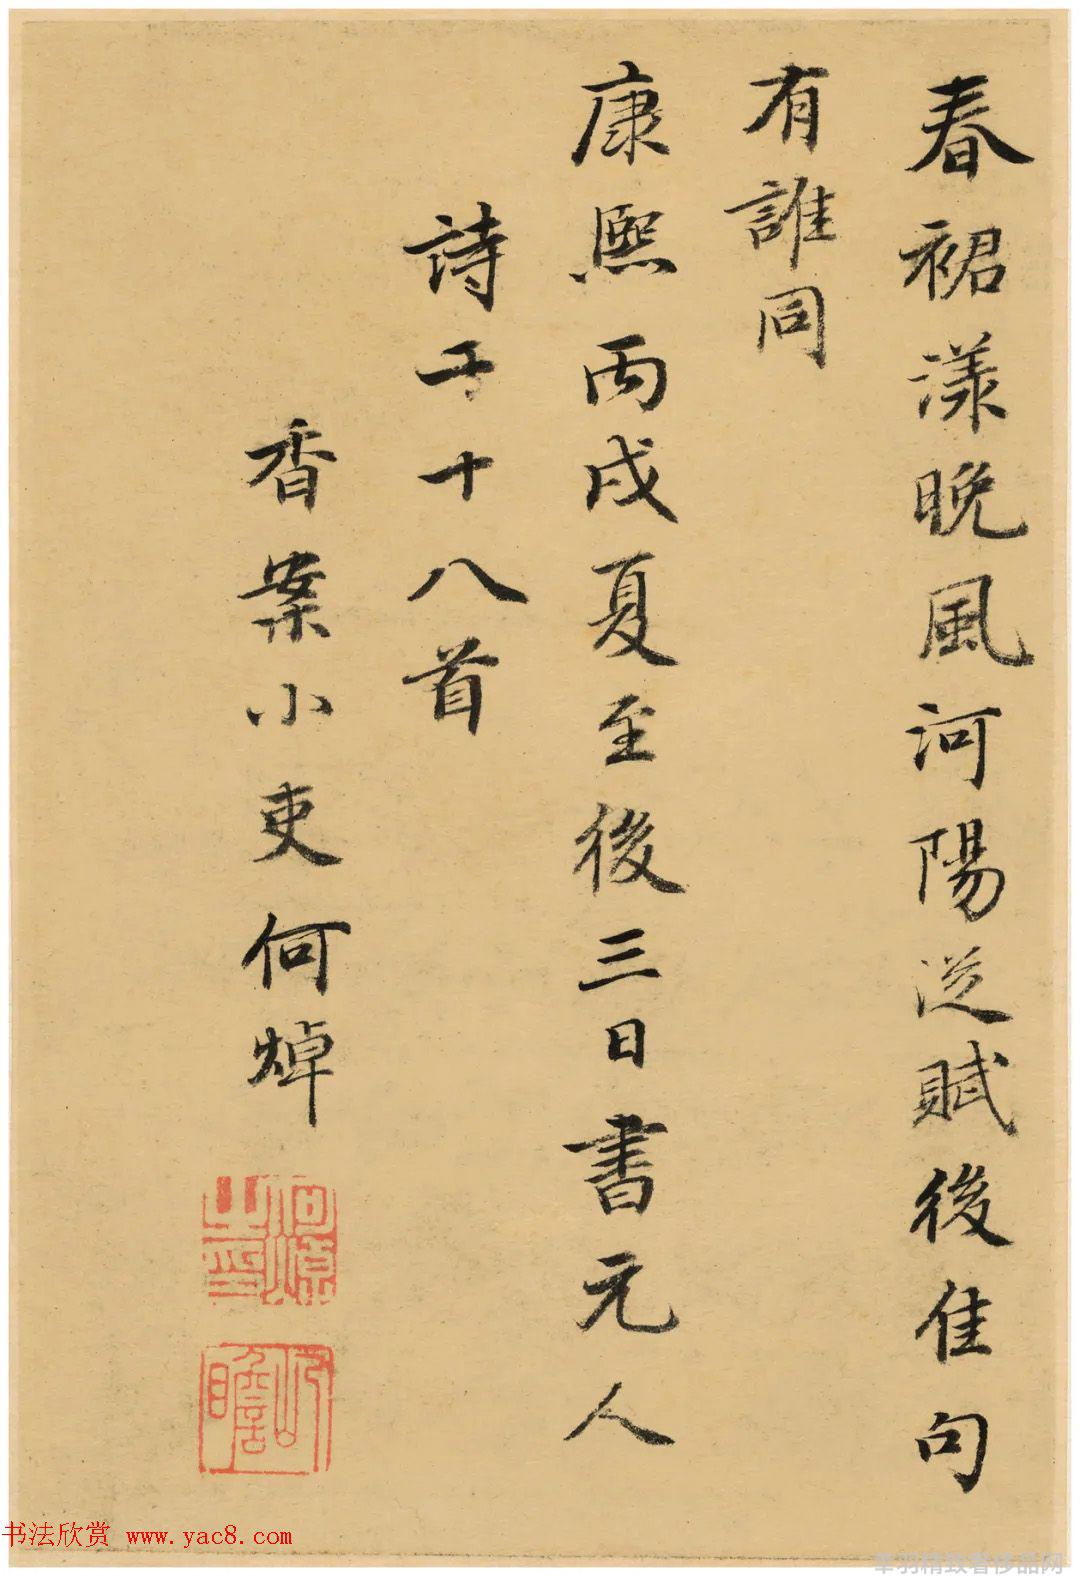 春裙漾晚風河陽從賦後佳句
有誰同
康熙丙戌夏至後三日書元人
詩五十八首
香案小吏何焯
何焯之印
屺瞻
书法欣赏 www.yac8.com